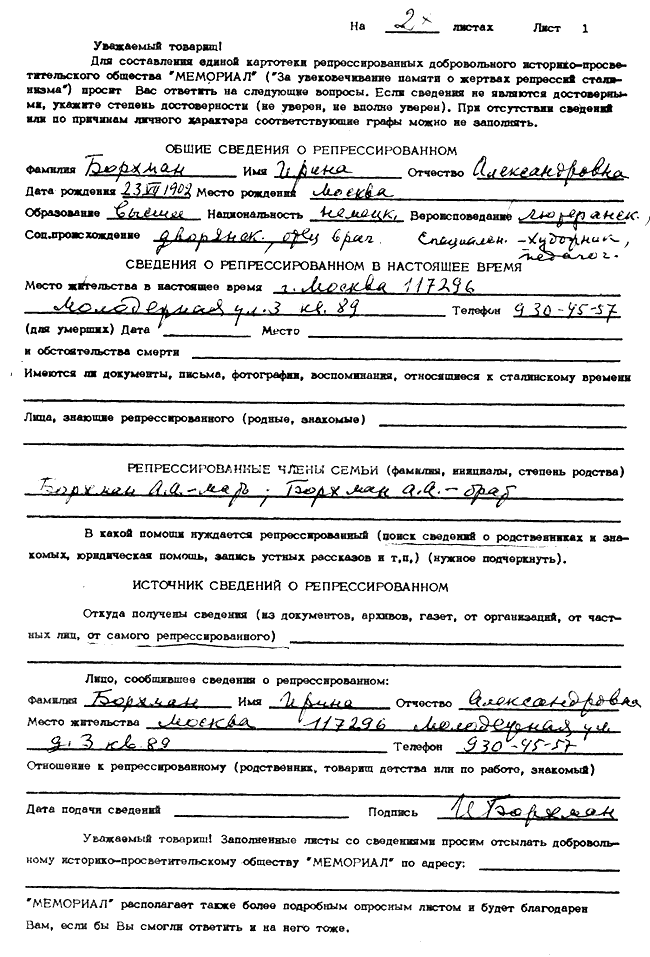 На 2х листах Лист 1
Уважаемый товарищ!
Для составления единой картотеки репрессированных добровольного историко-просве-
тительского общества "МЕМОРИАЛ" ("За увековечивание памяти о жертвах репрессий стали-
низма") просит Вас ответить на следующие вопросы. Если сведения не являются достоверны-
ми, укажите степень достоверности (не уверен, не вполне уверен). При отсутствии сведений
или по причинам личного характера соответствующие графы можно не заполнять.
ОБЩИЕ СВЕДЕНИЯ О РЕПРЕССИРОВАННОМ
Фамилия Борхман Имя Ирина Отчество Александровна
Дата рождения 23 VII 1902 Место рождений Москва
Образование высшее Национальность немецк. Вероисповедание лютеранск.,
Соц.происхождение дворянск., отец врач. Специальн. - художник,
педагог.
СВЕДЕНИЯ О РЕПРЕССИРОВАННОМ В НАСТОЯЩЕЕ ВРЕМЯ
Место жительства в настоящее время г. Москва 117296
Молодежная ул. 3 кв. 89 Телефон 930-45-57
(для умерших) Дата Место
и обстоятельства смерти
Имеются ли документы, письма, фотографии, воспоминания, относящиеся к сталинскому времени
Лица, знающие репрессированного (родные, знакомые)
РЕПРЕССИРОВАННЫЕ ЧЛЕНЫ СЕМЬИ (фамилии, инициалы, степень родства)
Борхман А.А.-мать; Борхман А.А.-брат
В какой помощи нуждается репрессированный (поиск сведений о родственниках и зна-
комых, юридическая помощь, запись устных рассказов и т.п.) (нужное подчеркнуть).
ИСТОЧНИК СВЕДЕНИЙ О РЕПРЕССИРОВАННОМ
Откуда получены сведения (из документов, архивов, газет, от организаций, от част-
ных лиц, от самого репрессированного)
Лицо, сообщившее сведения о репрессированном:
Фамилия Борхман Имя Ирина Отчество Александровна
Место жительства Москва 117296 Молодежная ул.
д. 3 кв. 89 Телефон 930-45-57
Отношение к репрессированному (родственник, товарищ детства или по работе, знакомый)
Дата подачи сведений Подпись И Борхман
Уважаемый товарищ! Заполненные листы со сведениями просим отсылать доброволь-
ному историко-просветительскому обществу "МЕМОРИАЛ" по адресу:
"МЕМОРИАЛ" располагает также более подробным опросным листом и будет благодарен
Вам, если бы Вы смогли ответить и на него тоже.